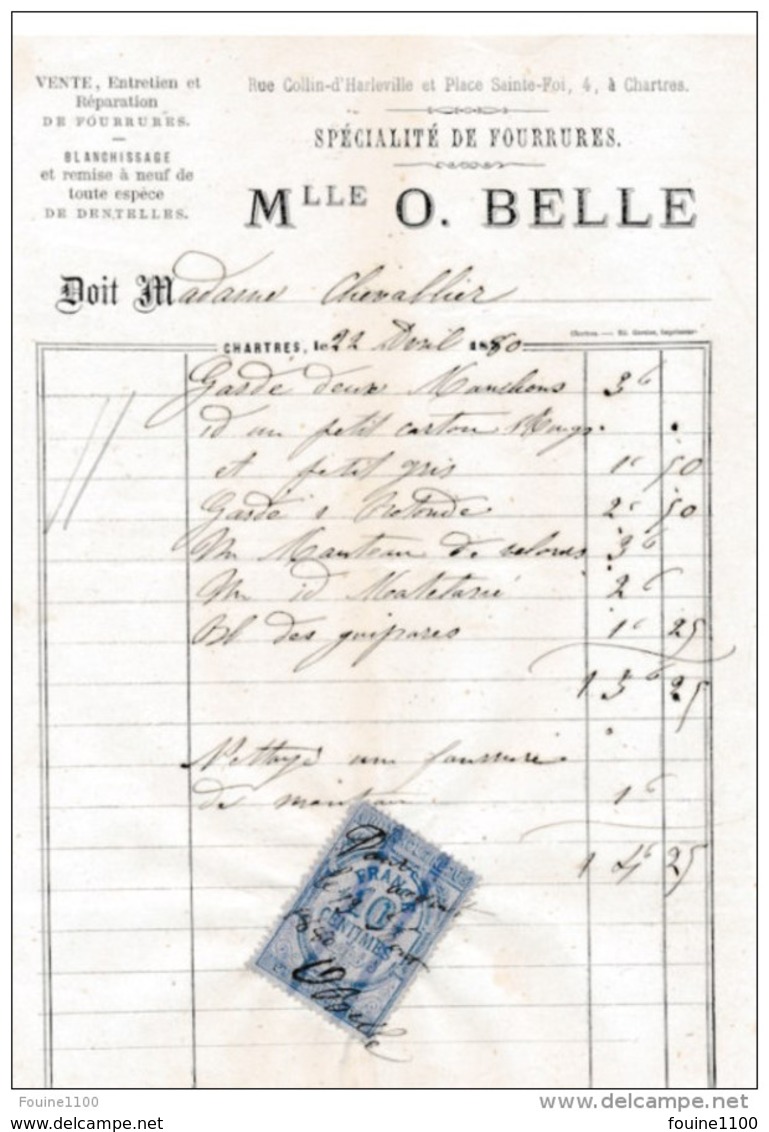 VENTE, Entretien et
Réparation
DE FOURRURES.
BLANCHISSAGE
et remise à neuf de
toute espèce
DE DENTELLES.
Rue Collin-d'Harleville et Place Sainte-Foi, 4, à Chartres.
SPÉCIALITÉ DE FOURRURES.
MLLE O. BELLE
Doit Madame Chevallier
CHARTRES, le 22 Avril 1880
Garde deux Manchons 3f
id un petit carton
et petit gris 1f 50
Gardé 1 Rotonde 2f 50
Un Manteau de velours 3f
Un id Matelassé 2f
Bl des guipures 1f 25
13f 25
Nettoyé une fourrure
de manteau 1f
14f 25
FRANCE
10
CENTIMES
1880
O Belle
Fouine1100
delcampe.net
fouine1100